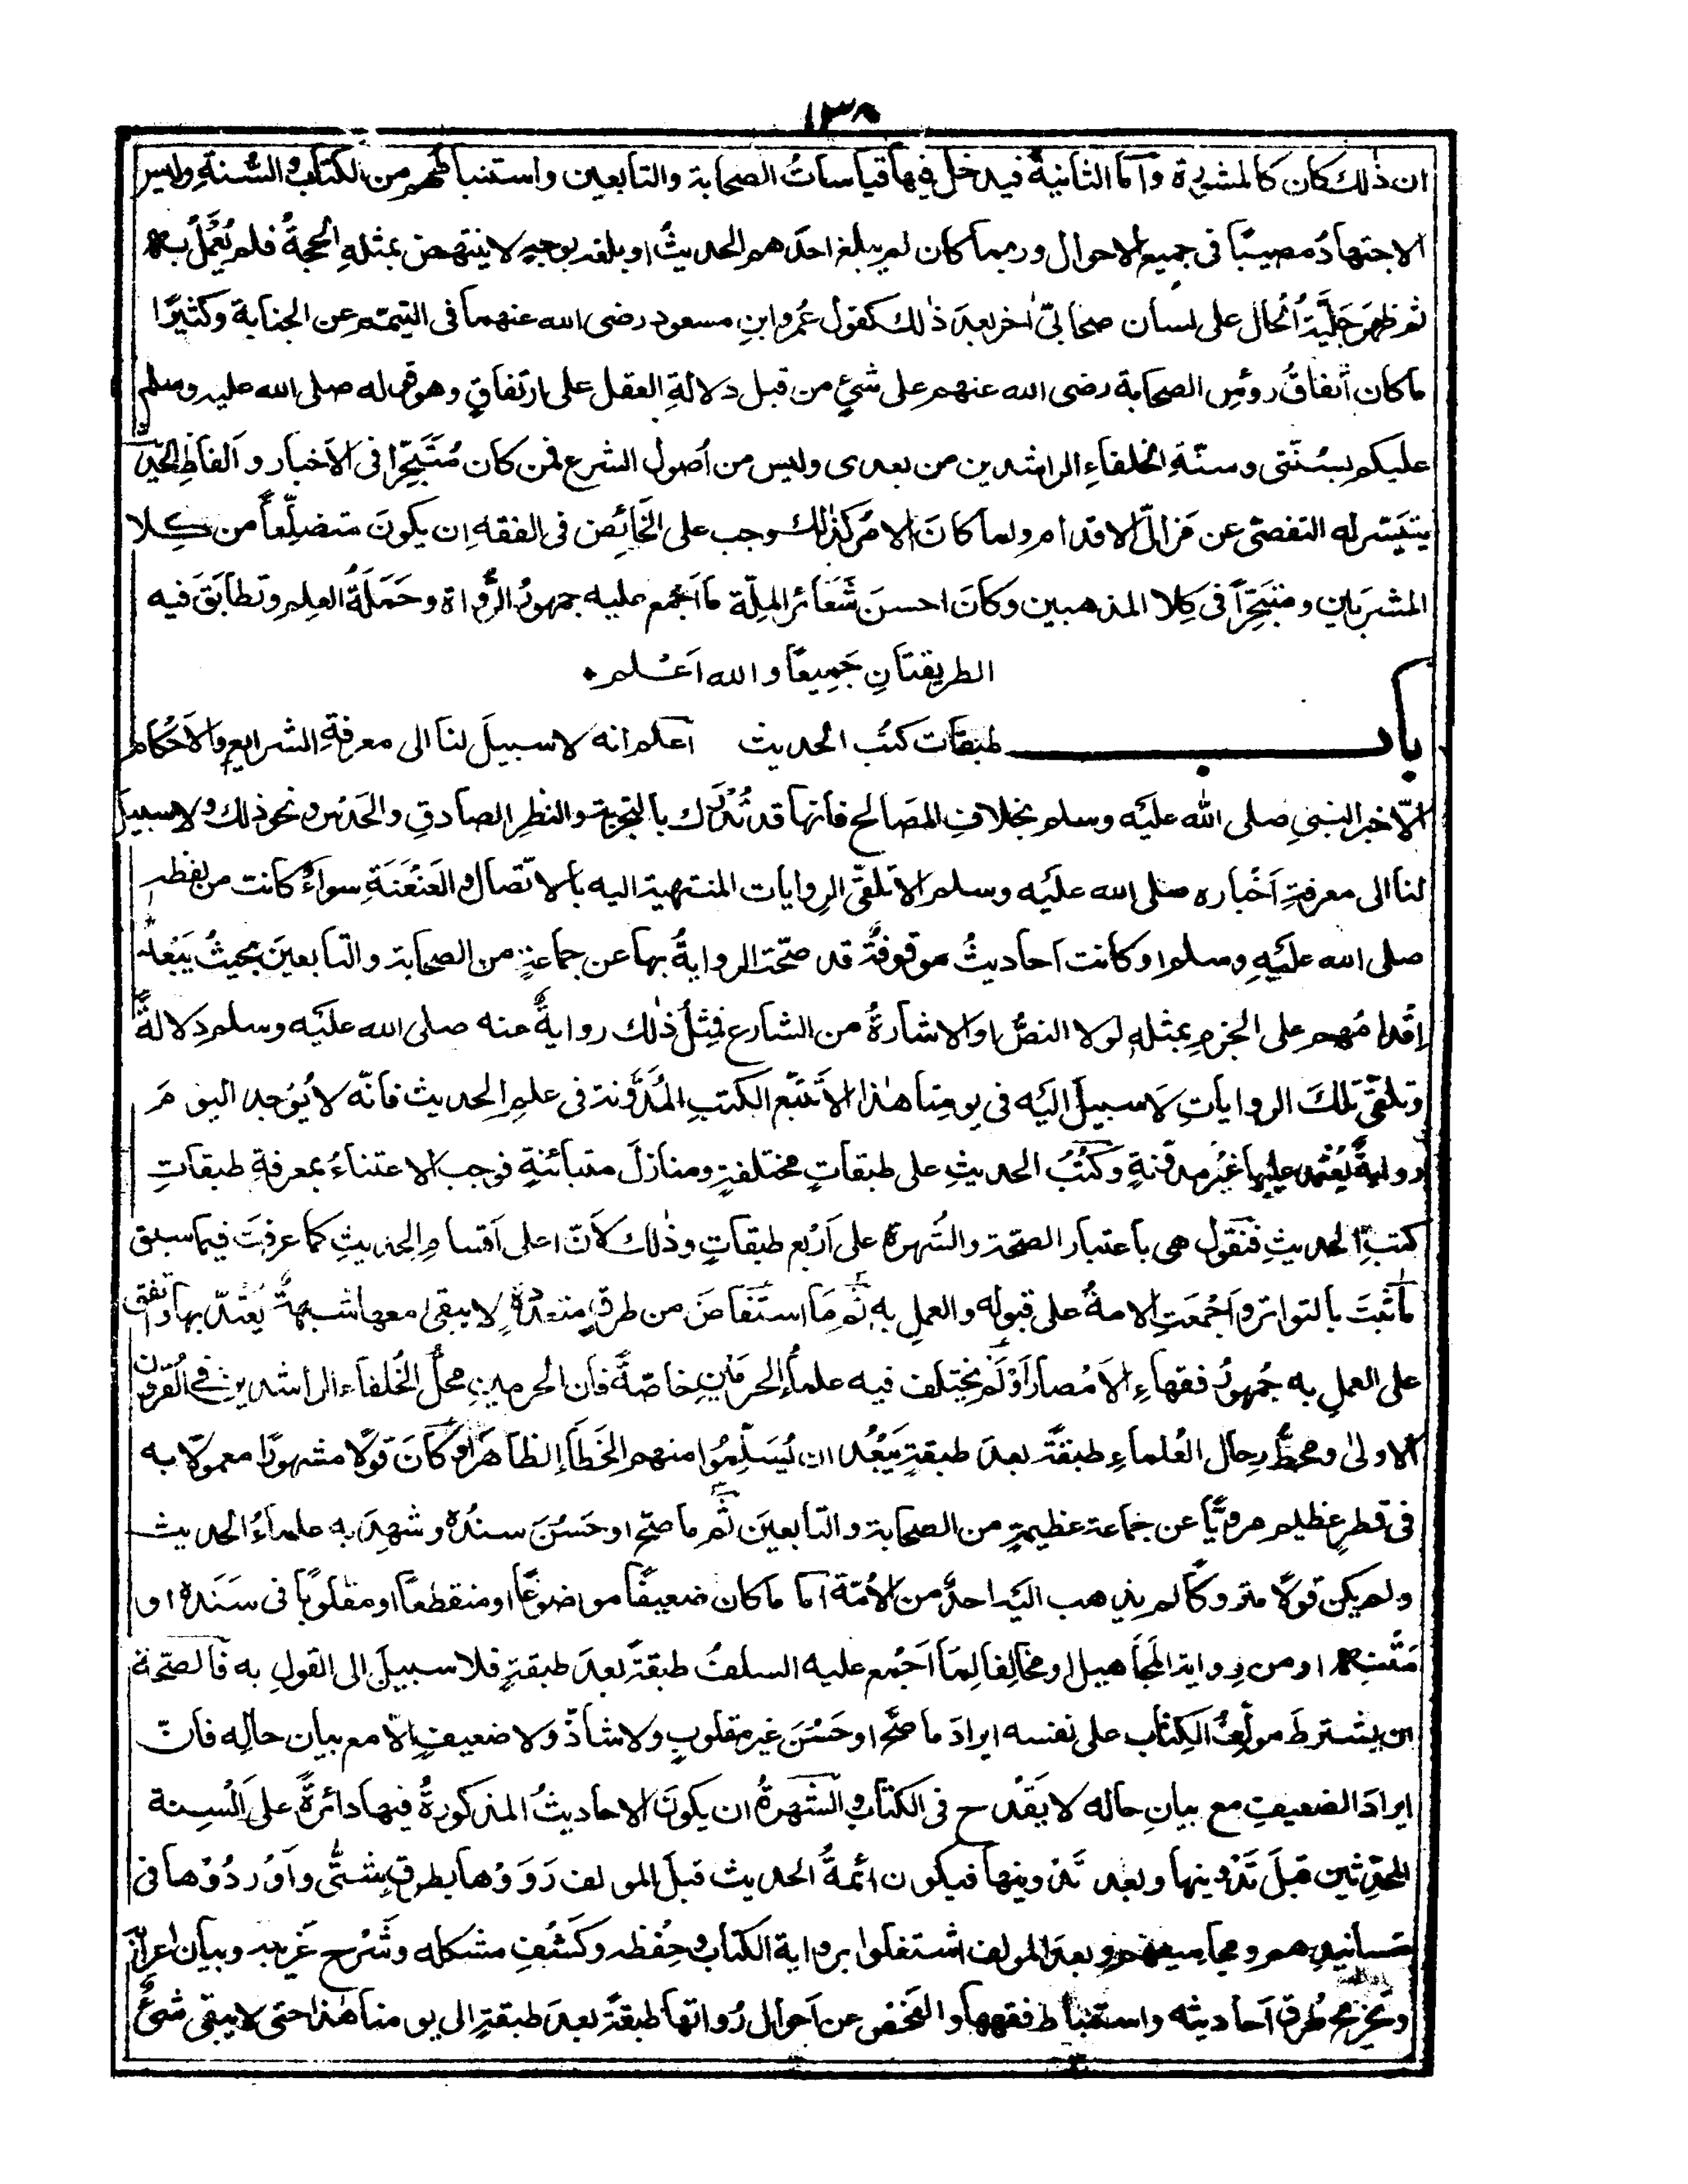 ١٣٨
ان ذلك كان كالمشورة واما الثانية فيدخل فيها قياسات الصحابة والتابعين واستنباطهم من الكتاب والسّنةِ وليس
الاجتهادُ مصيبًا فى جميع الاحوال وربما كان لم يبلغ احدَهم الحديثُ او بلغه بوجهٍ لا ينتهض بمثلهِ الحجةُ فلم يُعْمَلْ به
ثم ظهرَ جَلِيَّةُ الحال على لسان صحابىّ اٰخر بعدَ ذٰلك كقول عُمَر وابنِ مسعود رضى الله عنهما فى التيمّم عن الجنابة وكثيرًا
ما كان اتفاقُ رؤسِ الصحابة رضى الله عنهم على شئٍ من قبل دلالةِ العقل على ارتفاقٍ وهو قوله صلى الله عليه وسلم
عليكم بسُنّتى وسنّةِ الخلفاءِ الراشدين من بعدى وليس من اُصول الشرع فمن كان مُتَبَحِّرا فى الاَخبار واَلفاظِ الحديث
يتيَسّر له التفصّى عن مَزالّ الاقدام ولما كانَ الامرُ كذٰلك وجب على الخائِض فى الفقه ان يكونَ متضلِّعاً من كِلا
المشرَبين ومتبَحِّراً فى كِلا المذهبين وكانَ احسنَ شَعَائر المِلّة ما اَجْمع عليه جمهورُ الرُّواة وحَمَلَةُ العِلمِ وتَطابَقَ فيه
الطريقتانِ جَمِيعًا والله اَعْلم٠
باب طبقات كتُب الحديث اعلم انه لا سبيلَ لنا الى معرفةِ الشرايعِ والاَحْكام
الّا خبر النبىِ صلى الله عليَه وسلم بخلافِ المَصَالح فانّها قد تُدْرَك بالتجربة والنظرِ الصادقِ والحَدسِ ونحو ذلك ولا سبيلَ
لنا الى معرفةِ اَخْباره صلى الله عليَه وسلم الا تلقّى الروايات المنتهية اليه بالاتّصال والعَنْعَنَةِ سواءٌ كانت من لفظه
صلى الله عليَهِ وسلم او كانت احاديثُ موقوفةٌ قد صحّت الروايةُ بها عن جماعةٍ من الصحابة والتابعينَ بحيثُ يَبْعدُ
اِقْدامُهم على الجزمِ بمثلهِ لولا النصُّ او الاشارةُ من الشارع فمِثلُ ذٰلك روايةٌ عنه صلى الله عليَه وسلم دِلالةً
وتلقّى تلكَ الرواياتِ لَا سبيلَ اليَه فى يومِنا هٰذا الا تَتبّع الكتبِ المُدَوَّنة فى علمِ الحديث فانّه لا يُوْجد اليومَ
روايةٌ يُعْتمد عليها غيرُ مدوّنةٍ وكُتُبُ الحديثِ على طبقاتٍ مختلفةٍ ومنازلَ متبائنةٍ فوجب الاعتناءُ بمعرفةِ طبقاتِ
كتبِ الحديثِ فنقول هى باعتبار الصحّة والشُهرة على اَرْبع طبقاتٍ وذٰلك لاَنّ اعلى اَقسامِ الحديثِ كما عرفتَ فيما سبق
ما ثبَتَ بالتواتر واَجْمَعَتِ الامةُ على قبوله والعملِ به ثم مَا استَفاضَ من طرقٍ متعدّدةٍ لا يبقٰى معها شبهةٌ يُعْتدّ بها واتّفق
على العملِ به جُمْهورُ فقهاءِ الاَمْصار اَوْ لَمْ يختلف فيه علماءُ الحرمَينِ خاصّةً فان الحرمينِ محلُّ الخُلفاءِ الراشدين فى القُرون
الاولىٰ ومحطُّ رِحال العُلماءِ طبقةً بعدَ طبقةٍ يَبْعُد ان يُسَلِّمُوا منهم الخَطاَ الظاهرَ او كانَ قولًا مشهورًا معمولًا به
فى قطرٍ عظيمٍ مرويًّا عن جماعة عظيمةٍ من الصحابة والتابعينَ ثُم ما صحّ او حَسُنَ سندُه وشهِدَ به علماءُ الحديث
ولم يكن قولًا متروكاً لم يذهب اليَه احدٌ من الاُمّة اما ما كان ضعيفًا موضوعًا او منقطعًا او مقلوبًا فى سَنَدِه او
مَتْنِه او من رِواية المَجاهيل او مخالِفا لِمَا اَجْمع عليه السلفُ طبقةً بعدَ طبقةٍ فلا سبيلَ الى القولِ به فالصحّة
ان يشترطَ مولِّفُ الكِتاب على نفسه ايرادَ ما صحَّ او حَسُنَ غير مقلوبٍ ولا شاذٍّ ولا ضعيفٍ الّا مع بيان حالِه فانّ
ايرادَ الضعيفِ مع بيانِ حاله لا يَقْدح فى الكتاب والشّهرةُ ان يكونَ الاحاديثُ المذكورةُ فيها دائرةً على اَلْسِنة
المحدّثين قبلَ تَدْوينها وبعد تَدْوينها فيكون ائمةُ الحديث قبلَ المولف رَوَوْها بطرقٍ شتّٰى واَوْردُوْها فى
مسانيدِهم ومجاميعهم وبعدَ المولف اشتغلوا برواية الكتاب وحِفْظه وكَشْفِ مشكله وشَرْح غَريبه وبيان اعرابه
وتخريجِ طُرق اَحاديثه واستنباط فقهها والفَحْص عن اَحوال رُواتها طبقةً بعدَ طبقةٍ الى يومنا هٰذا حتى لا يبقى شئٌ